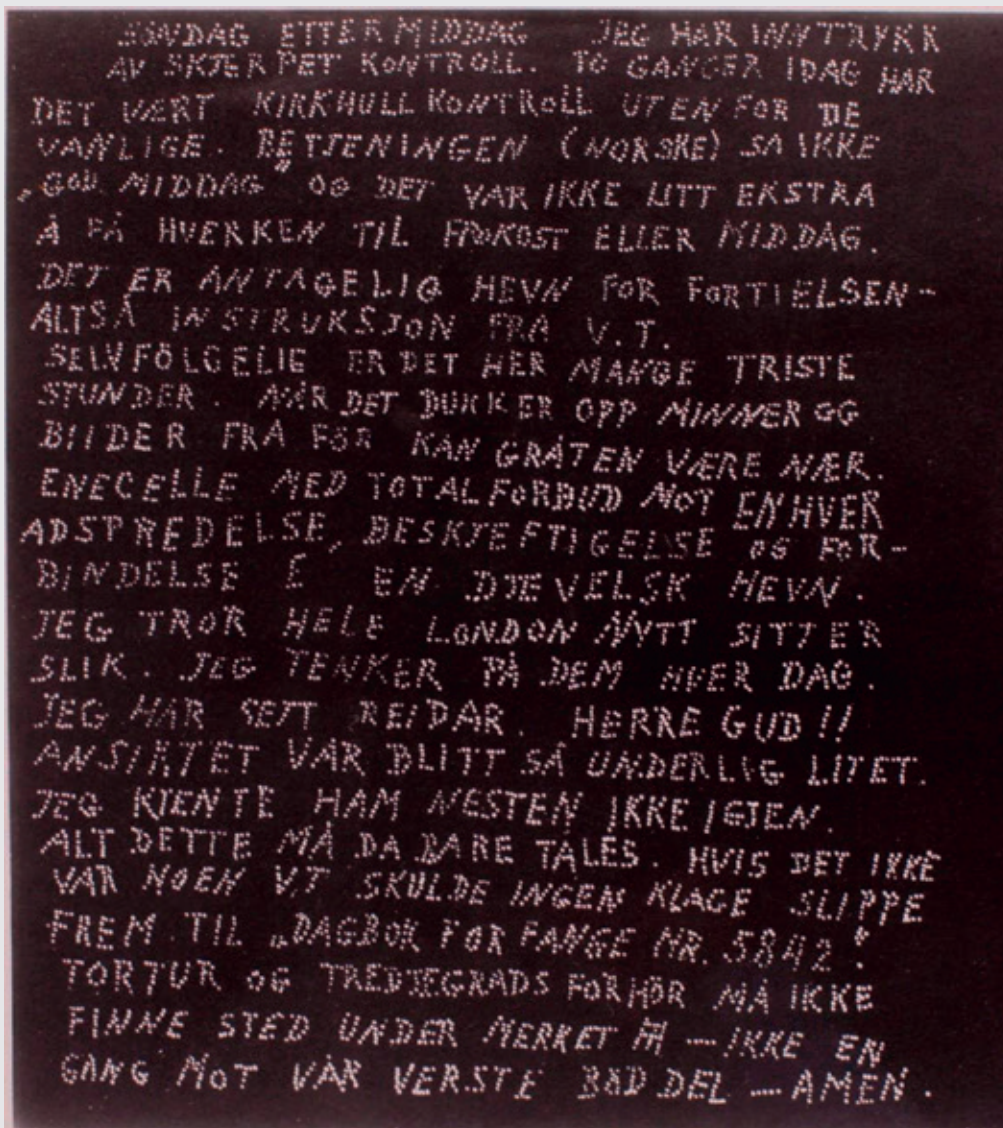 SØNDAG ETTERMIDDAG JEG HAR INNTRYKK
AV SKJERPET KONTROLL. TO GANGER IDAG HAR
DET VÆRT KIKKHULLKONTROLL UTENFOR DE
VANLIGE. BETJENINGEN (NORSKE) SA IKKE
„GOD MIDDAG" OG DET VAR IKKE LITT EKSTRA
Å FÅ HVERKEN TIL FROKOST ELLER MIDDAG.
DET ER ANTAGELIG HEVN FOR FORTIELSEN-
ALTSÅ INSTRUKSJON FRA V.T.
SELVFÖLGELIG ER DET HER MANGE TRISTE
STUNDER. NÅR DET DUKKER OPP MINNER OG
BILDER FRA FÖR KAN GRÅTEN VÆRE NÆR.
ENECELLE MED TOTALFORBUD MOT ENHVER
ADSPREDELSE, BESKJEFTIGELSE OG FOR-
BINDELSE É EN DJEVELSK HEVN.
JEG TROR HELE LONDON NYTT SITTER
SLIK. JEG TENKER PÅ DEM HVER DAG.
JEG HAR SETT REIDAR. HERRE GUD!!
ANSIKTET VAR BLITT SÅ UNDERLIG LITET.
JEG KJENTE HAM NESTEN IKKE IGJEN.
ALT DETTE MÅ DA BARE TÅLES. HVIS DET IKKE
VAR NOEN VT SKULDE INGEN KLAGE SLIPPE
FREM TIL „DAGBOK FOR FANGE NR. 5842".
TORTUR OG TREDJEGRADS FORHÖR MÅ IKKE
FINNE STED UNDER MERKET — IKKE EN
GANG MOT VÅR VERSTE BØDDEL — AMEN.